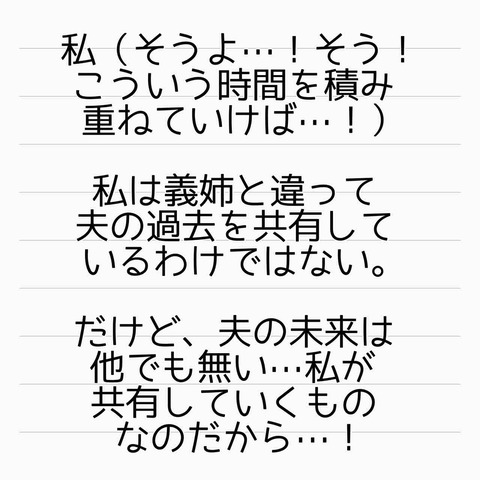 私（そうよ…！そう！
こういう時間を積み
重ねていけば…！）
私は義姉と違って
夫の過去を共有して
いるわけではない。
だけど、夫の未来は
他でも無い…私が
共有していくもの
なのだから…！